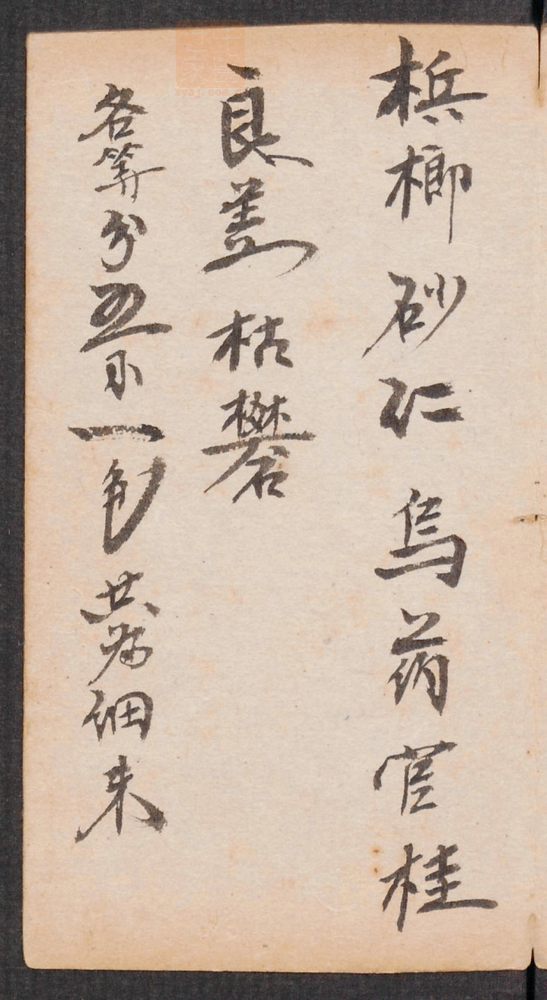 梹榔砂仁烏药官桂
良姜枯礬
各等分五分一色共为细末